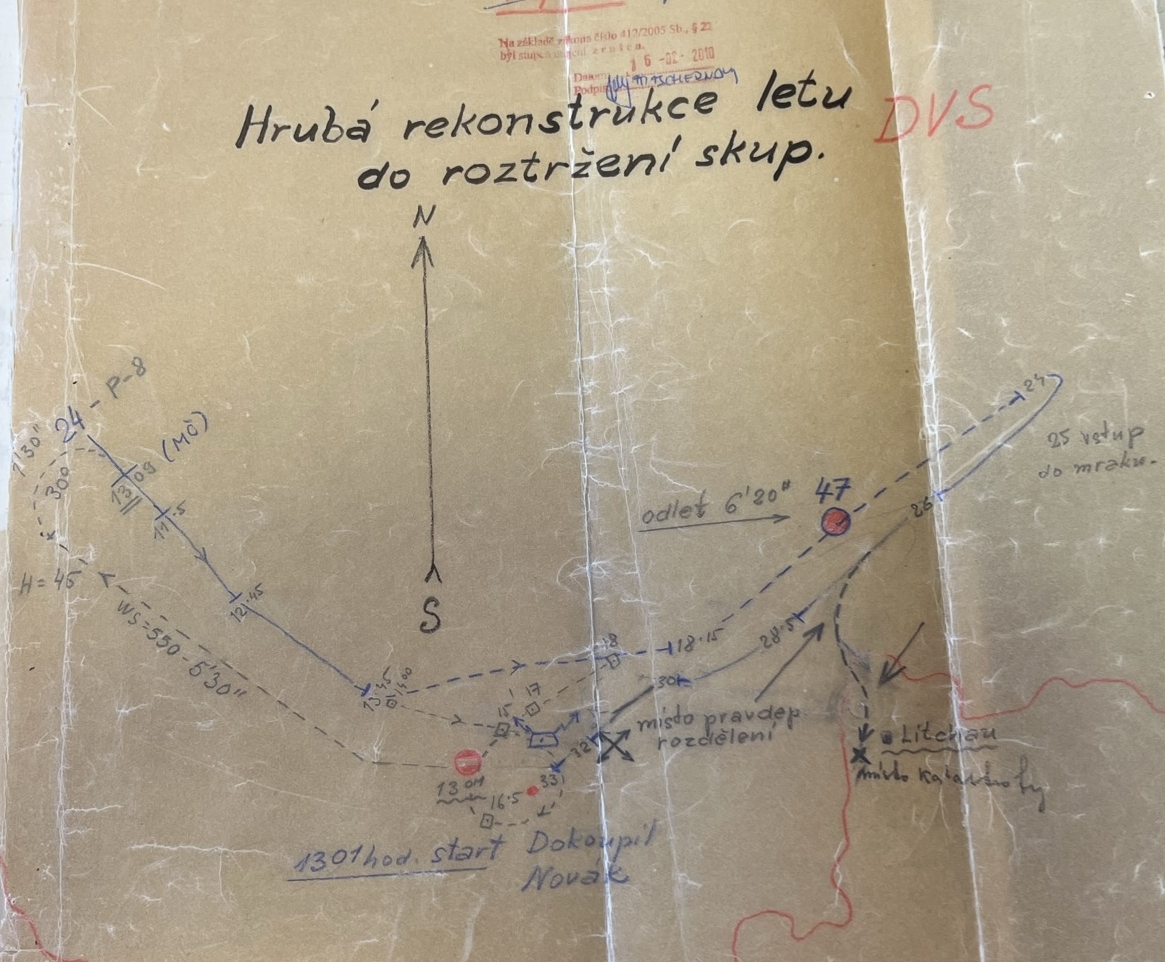 Na základě zákona číslo 412/2005 Sb., § 22
byl stupeň utajení zrušen.
16 -02- 2010
Podpis TSCHERNOH
Hrubá rekonstrukce letu
do roztržení skup.
DVS
N
24 - P-8
1'30"
300
1309 (MČ)
11.5
25 vstup
do mraku.
24
47
odlet 6'20"
26
H = 45
12.45
WS=550 - 5'30"
S
18
18.15
28.5
13.45
14.00
17
15
30
místo pravděp.
rozdělení
Litchau
32
33
místo katastrofy
16.5
1301 hod. start Dokoupil
Novák